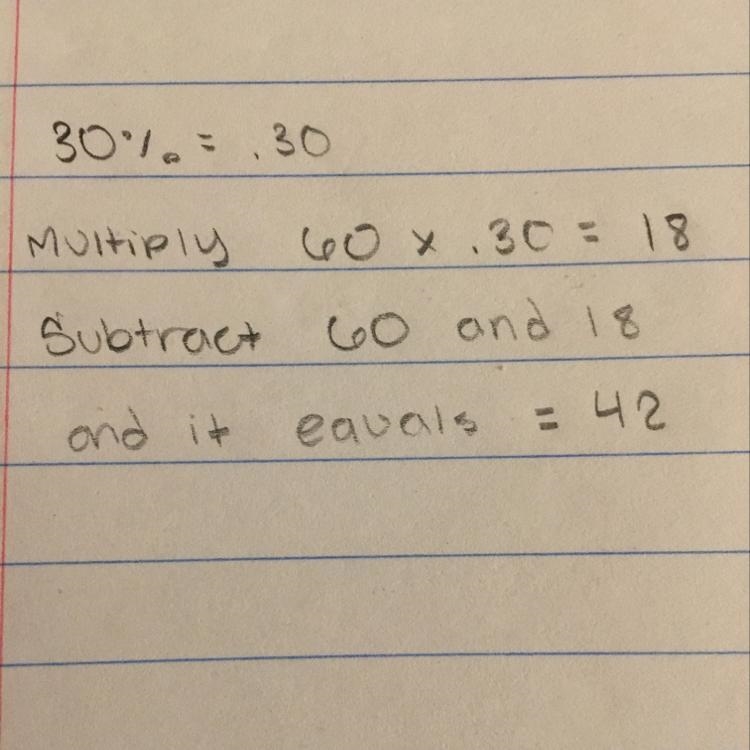 30% = .30
Multiply 60 x .30 = 18
Subtract 60 and 18
and it eauals = 42